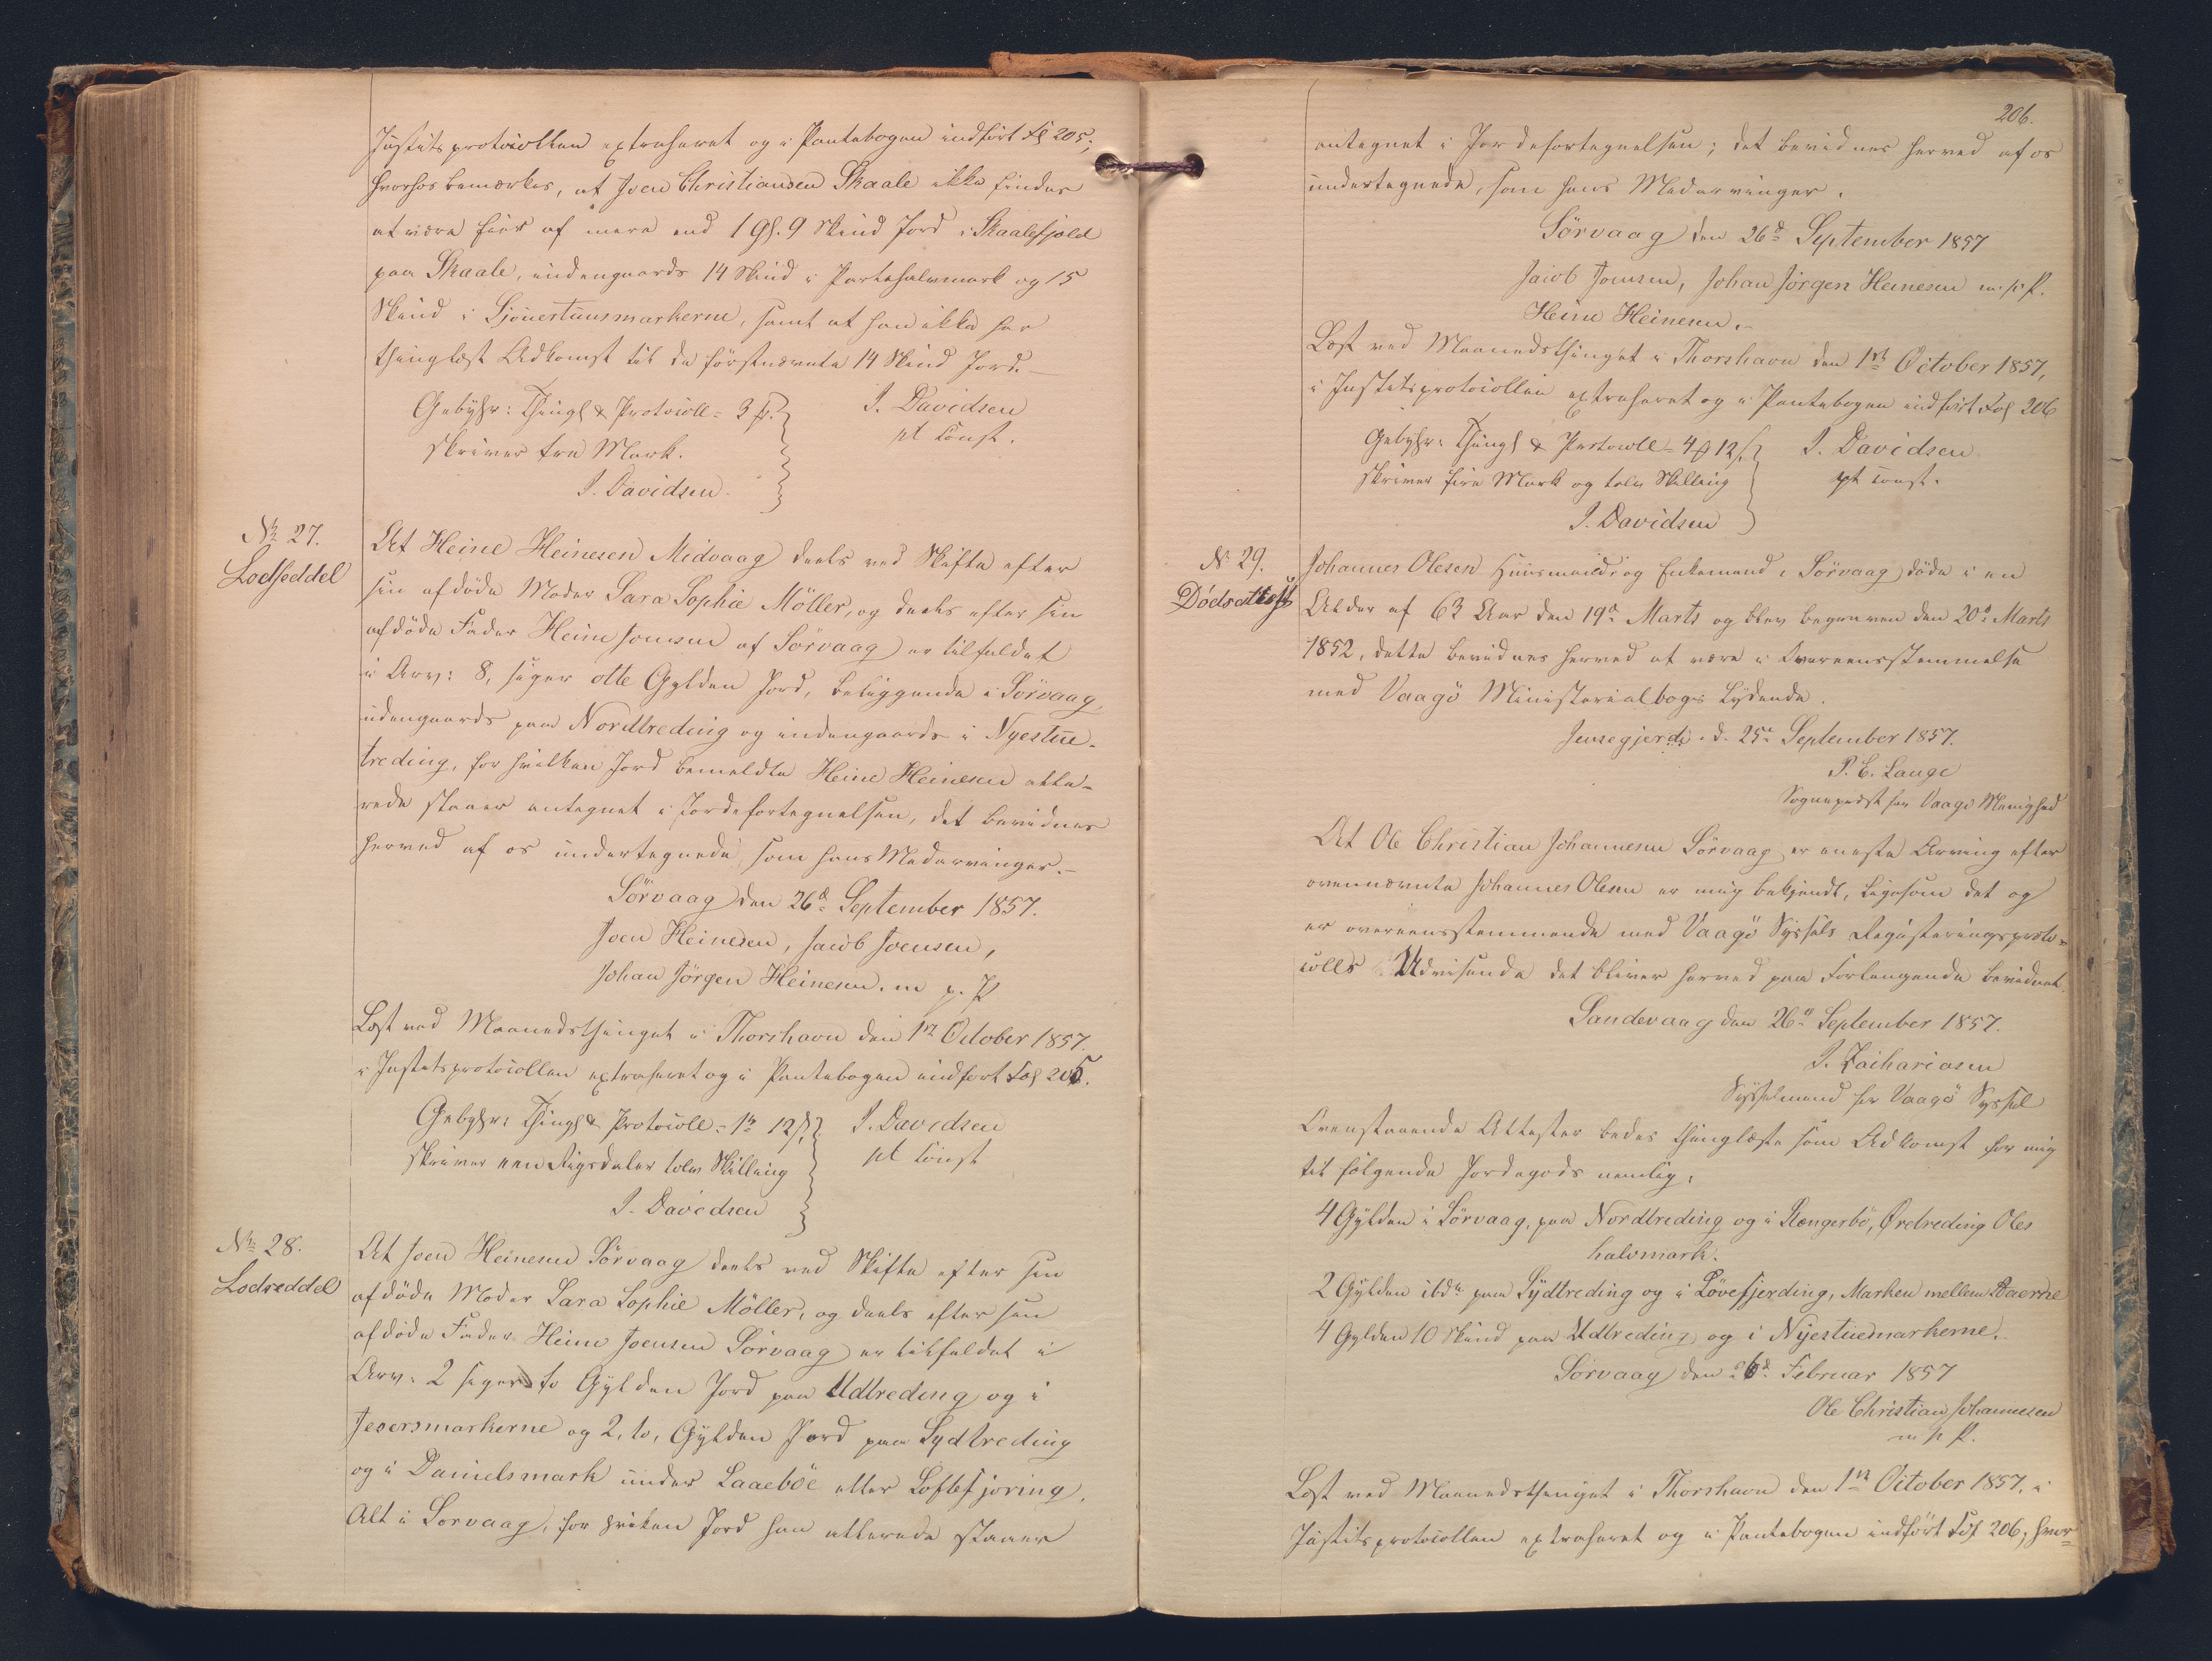 Justitsprotocollen extraheret og i Pantebogen indført Fol 205;
hvorhos bemærkes, at Joen Christiansen Skaale ikke findes
at være Eier af mere end 1 Gl. 9 Skind Jord i Skaalefjeld
paa Skaale, indengaards 14 Skind i Partahalvmark og 15
Skind i Sjóuertuusmarkerne, samt at han ikke har
thinglæst Adkomst til de förstnævnte 14 Skind Jord.
Gebyhr: Thingl & Protocoll = 3 #.
J. Davidsen
pt const.
skriver tre Mark.
J. Davidsen.
No 27.
Lodseddel
At Heine Heinesen Midvaag deels ved Skifte efter
sin afdöde Moder Sara Sophie Möller, og deels efter sin
afdöde Fader Heine Joensen af Sörvaag er tilfaldet
i Arv: 8, siger otte Gylden Jord, beliggende i Sörvaag,
udengaards paa Nordtreding og indengaards i Nyestue-
treding, for hvilken Jord bemeldte Heine Heinesen alle-
rede staaer antegnet i Jordefortegnelsen, det bevidnes
herved af os undertegnede, som hans Medarvinger.-
Sörvaag den 26d September 1857.
Joen Heinesen, Jacob Joensen,
Johan Jörgen Heinesen. m. p. P
Læst ved Maanedsthinget i Thorshavn den 1st October 1857.
i Justitsprotocollen extraheret og i Pantebogen indfört Fol 205.
Gebyhr: Thingl & Protocoll = 1rd 12 s
J. Davidsen
pt const
skriver een Rigsdaler tolv Skilling
J. Davidsen
No 28.
Lodseddel
At Joen Heinesen Sörvaag deels ved Skifte efter sin
afdöde Moder Sara Sophie Möller, og deels efter sin
afdöde Fader Heine Joensen Sörvaag er tilfaldet i
Arv: 2 siger to Gylden Jord paa Udtreding og i
Jesersmarkerne og 2, to, Gylden Jord paa Sydtreding
og i Danielsmark under Laaeböe eller Loftsfjöring,
Alt i Sorvaag, for hvilken Jord han allerede staaer
206.
antegnet i Jordefortegnelsen; det bevidnes herved af os
undertegnede, som hans Medarvinger.
Sörvaag den 26d September 1857
Jacob Joensen, Johan Jörgen Heinesen m. p. P.
Heine Heinesen.-
Læst ved Maanedsthinget i Thorshavn den 1st October 1857,
i Justitsprotocollen extraheret og i Pantebogen indfört Fol 206
Gebyhr: Thingl & Protocoll = 4 # 12 s
J. Davidsen
pt const.
skriver fire Mark og tolv Skilling
J. Davidsen
No 29.
Dödsattest
Johannes Olesen Huusmand og Enkemand i Sörvaag döde i en
Alder af 63 Aar den 19de Marts og blev begraven den 20de Marts
1852, dette bevidnes herved at være i Overeensstemmelse
med Vaagö Ministerialbogs Lydende.
Jensegjerde d. 25de September 1857.
P. C. Lange
Sognepræst for Vaagö Menighed
At Ole Christian Johannesen Sörvaag er eneste Arving efter
ovennævnte Johannes Olesen er mig bekjendt, ligesom det og
er overeensstemmende med Vaagö Syssels Registeringsproto-
colls Udvisende det bliver herved paa Forlangende bevidnet.
Sandevaag den 26d September 1857.
J. Zachariasen
Sysselmand for Vaagö Syssel
Ovenstaaende Attester bedes thinglæste som Adkomst for mig
til følgende Jordegods nemlig:
4 Gylden i Sörvaag, paa Nordtreding og i Rængerbö, Øretreding Oles
halvmark.
2 Gylden ibd. paa Sydtreding og i Lövefjerding, Marken mellem Aaerne
4 Gylden 10 Skind paa Udtreding og i Nyestuemarkerne.
Sörvaag den 26d Februar 1857
Ole Christian Johannesen
m. p. P.
Læst ved Maanedsthinget i Thorshavn den 1st October 1857, i
Justitsprotocollen extraheret og i Pantebogen indfört Fol 206, hvor-